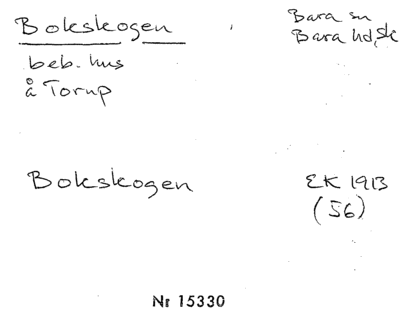 Bokskogen
Bara sn
Bara hd, sk
beb. hus
å Torup
Bokskogen
EK 1913
(56)
Nr 15330